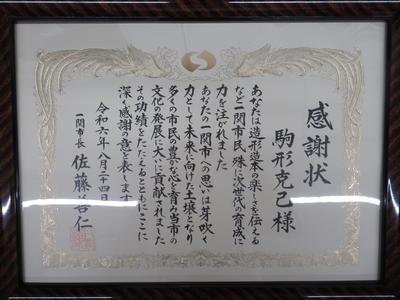 感謝状
駒形克己様
あなたは造形造本の楽しさを伝える
など一関市民、殊に次世代の育成に
力を注がれました
あなたの一関市への思いは芽吹く
力として未来に向けた土壌となり
多くの市民の豊かな心を育み当市の
文化の発展に大いに貢献されました
その功績をたたえるとともにここに
深く感謝の意を表します
令和六年八月二十四日
一関市長 佐藤善仁